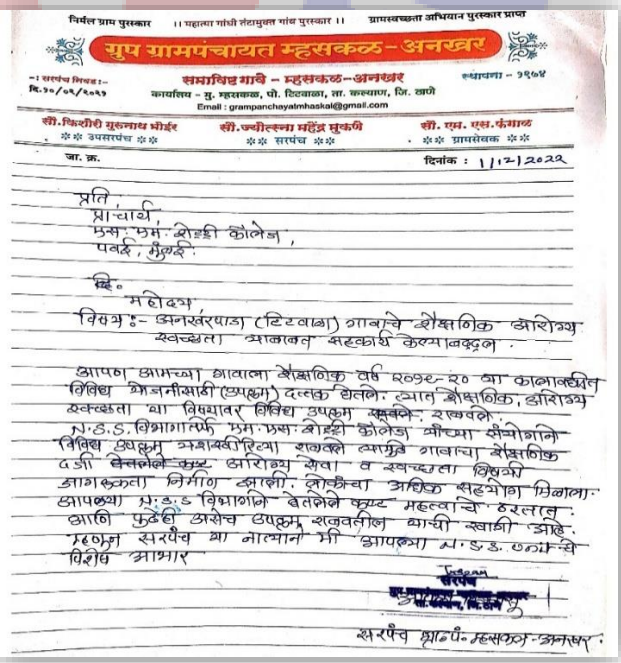 निर्मल ग्राम पुरस्कार ।। महात्मा गांधी तंटामुक्त गांव पुरस्कार ।। ग्रामस्वच्छता अभियान पुरस्कार प्राप्त
ग्रुप ग्रामपंचायत म्हसकळ-अनखर
-: सरपंच निवड:- समाविष्ट गावे - म्हसकळ-अनखर स्थापना - १९७४
दि.१०/०२/२०२१ कार्यालय - मु. म्हसकळ, पो. टिटवाळा, ता. कल्याण, जि. ठाणे
Email : grampanchayatmhaskal@gmail.com
सौ.किशोरी गुरुनाथ भोईर सौ.ज्योत्स्ना महेंद्र मुकणे सौ. एम. एस.फंगाळ
उपसरपंच सरपंच ग्रामसेवक
जा. क्र. दिनांक : 1/12/2022
प्रति,
प्राचार्य,
एस. एम. शेट्टी कॉलेज,
पवई, मुंबई.
वि.
महोदय,
विषय :- अनखरपाडा (टिटवाळा) गावाचे शैक्षणिक आरोग्य
स्वच्छता बाबत सहकार्य केल्याबद्दल.
आपण आमच्या गावाला शैक्षणिक वर्ष २०१९-२० या कालावधीत
विविध योजनांसाठी (उपक्रम) दत्तक घेतले. त्यात शैक्षणिक, आरोग्य
स्वच्छता या विषयावर विविध उपक्रम राबवले.
N.S.S. विभागातर्फे एस. एम. शेट्टी कॉलेज यांच्या संयोगाने
विविध उपक्रम यशस्वीरित्या राबवले त्यामुळे गावाचा शैक्षणिक
दर्जा आरोग्य सेवा व स्वच्छता विषयी
जागरूकता निर्माण झाली. लोकांचा अधिक सहयोग मिळाला.
आपल्या N.S.S विभागाने घेतलेले कष्ट महत्वाचे ठरतात.
आणि पुढेही असेच उपक्रम राबवतील याची खात्री आहे.
म्हणून सरपंच या नात्याने मी आपल्या N.S.S. unit चे
विशेष आभार
सरपंच
सरपंच ग्रा. पं. म्हसकळ-अनखर.